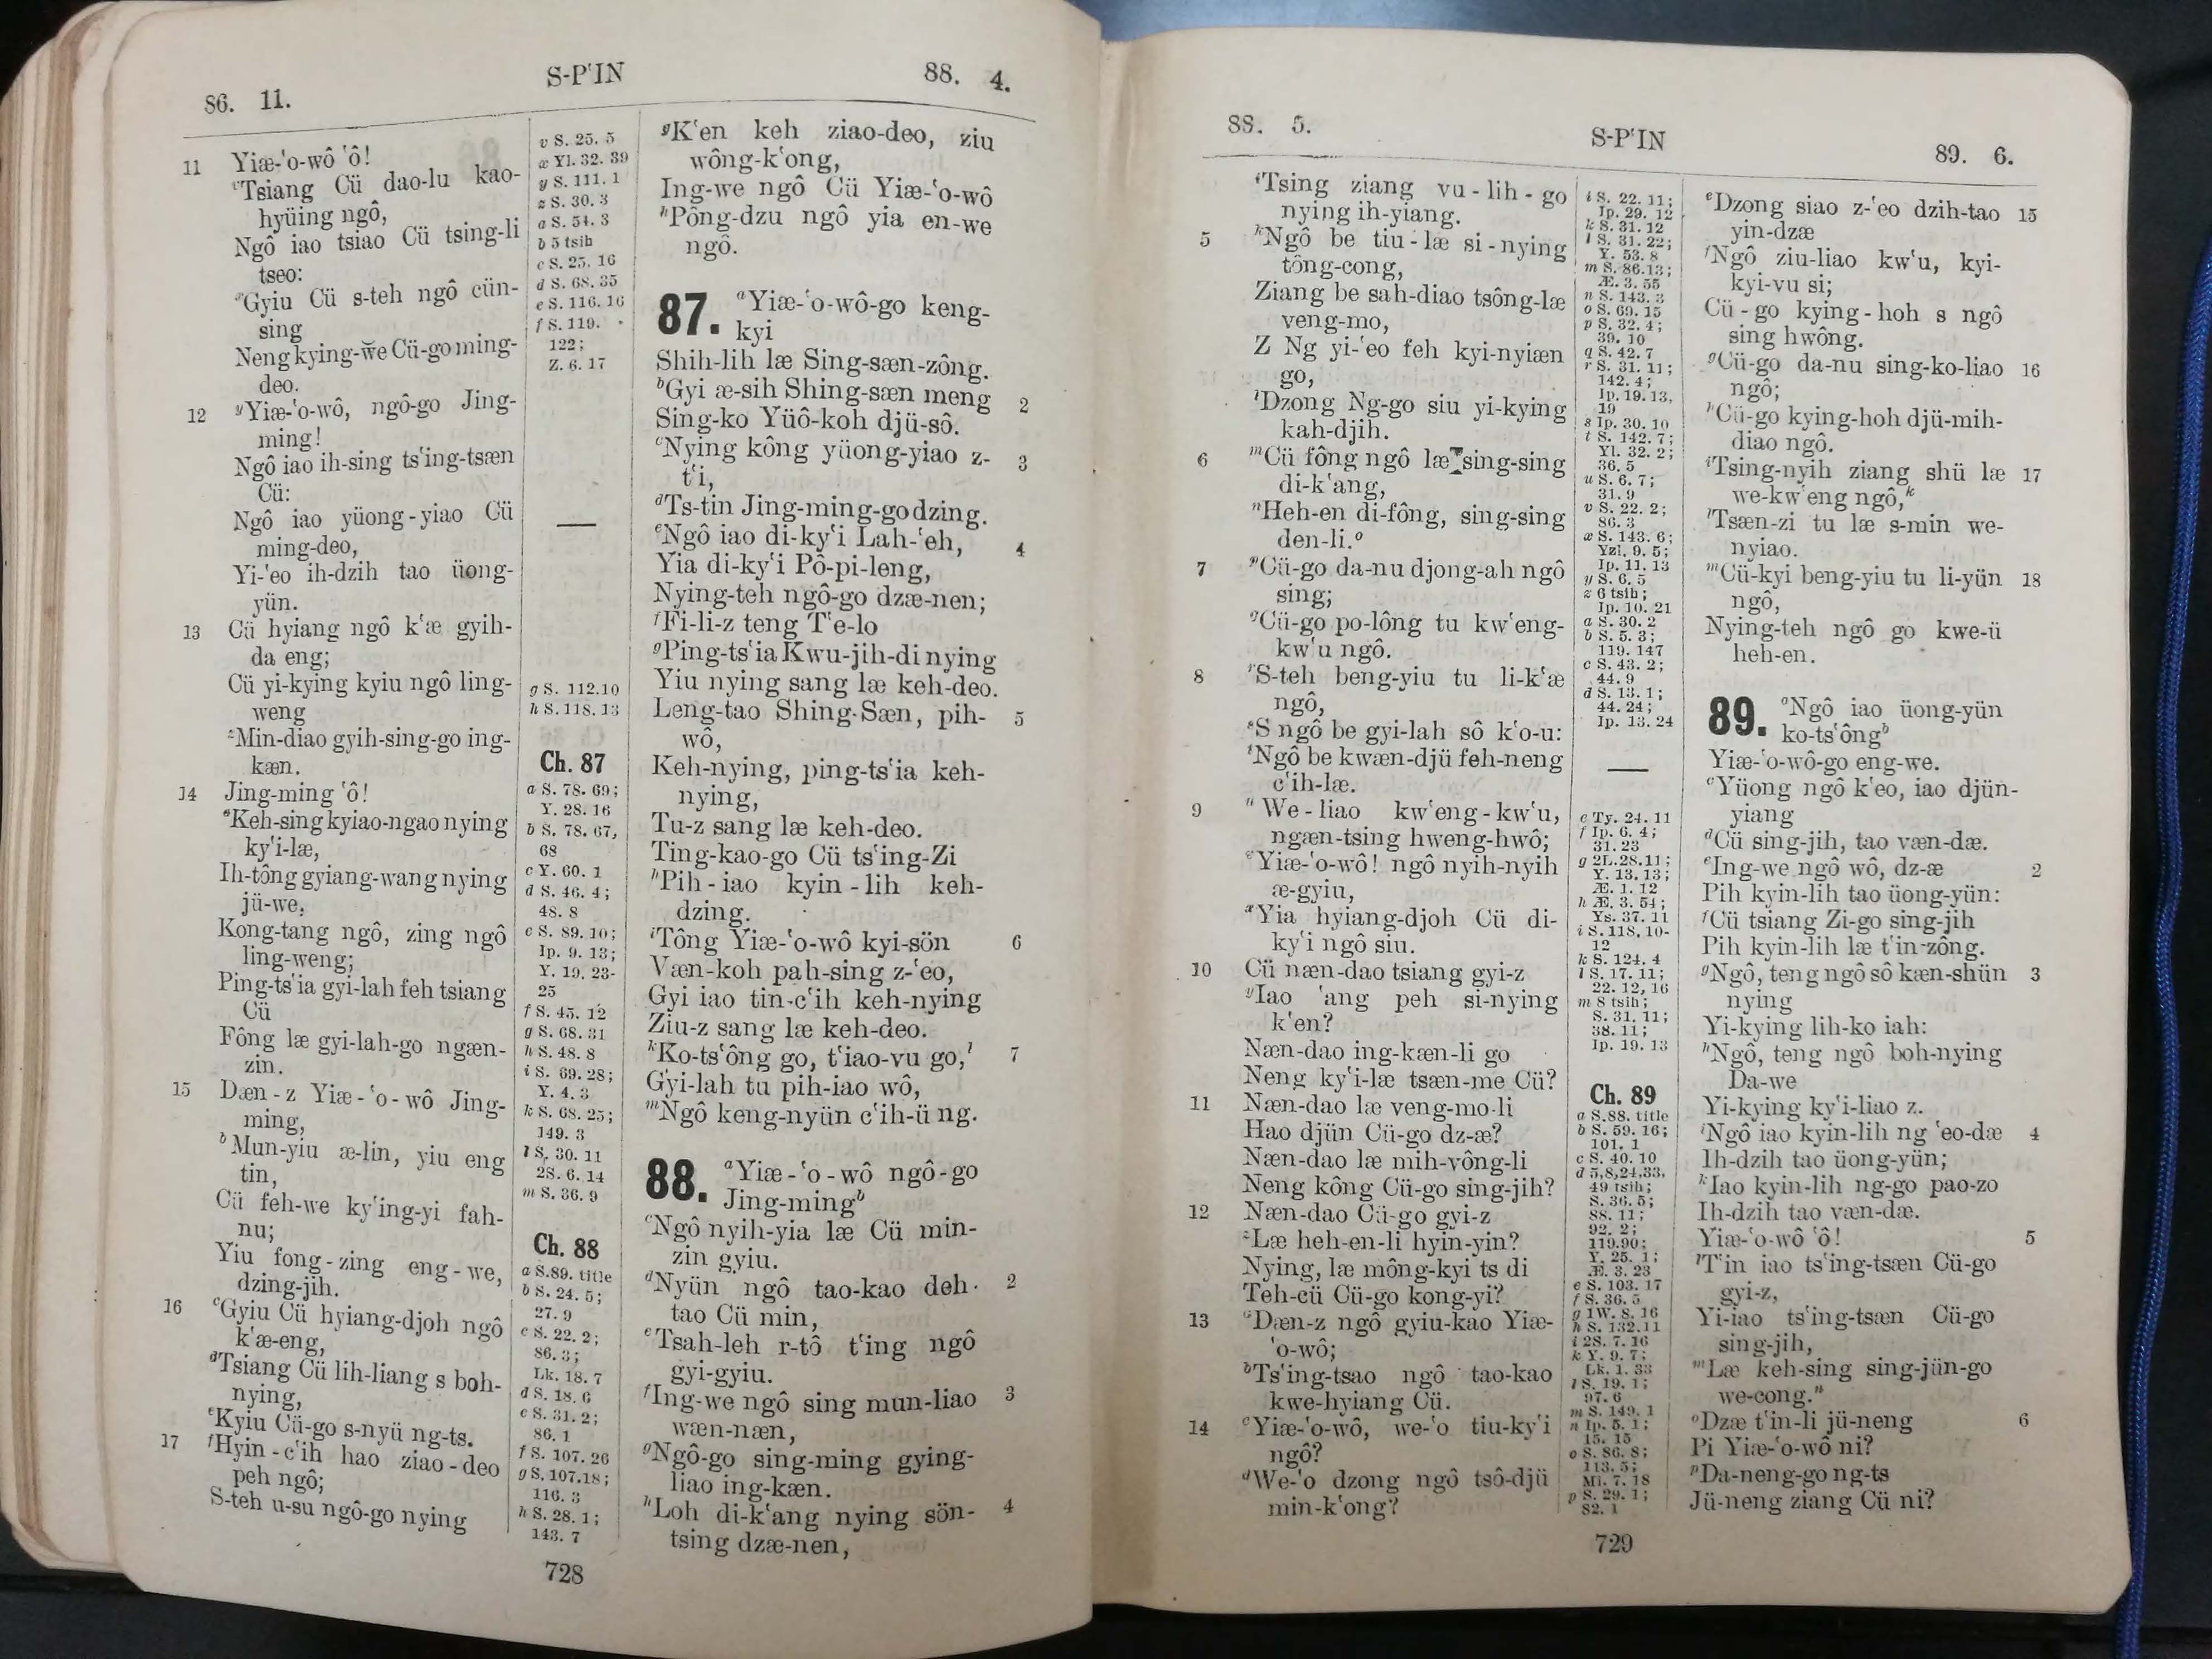 86. 11.
S-P‘IN
88. 4.
11 Yiæ-‘o-wô ‘ô!
ᵗTsiang Cü dao-lu kao-
hyüing ngô,
Ngô iao tsiao Cü tsing-li
tseo:
ˣGyiu Cü s-teh ngô cün-
sing
Neng kying-we Cü-go ming-
deo.
12 ʸYiæ-‘o-wô, ngô-go Jing-
ming!
Ngô iao ih-sing ts‘ing-tsæn
Cü:
Ngô iao yüong-yiao Cü
ming-deo,
Yi-‘eo ih-dzih tao üong-
yün.
13 Cü hyiang ngô k‘æ gyih-
da eng;
Cü yi-kying kyiu ngô ling-
weng
ᶻMin-diao gyih-sing-go ing-
kæn.
14 Jing-ming ‘ô!
ᵃKeh-sing kyiao-ngao nying
ky‘i-læ,
Ih-tông gyiang-wang nying
jü-we,
Kong-tang ngô, zing ngô
ling-weng;
Ping-ts‘ia gyi-lah feh tsiang
Cü
Fông læ gyi-lah-go ngæn-
zin.
15 Dæn-z Yiæ-‘o-wô Jing-
ming,
ᵇMun-yiu æ-lin, yiu eng
tin,
Cü feh-we ky‘ing-yi fah-
nu;
Yiu fong-zing eng-we,
dzing-jih.
16 ᶜGyiu Cü hyiang-djoh ngô
k‘æ-eng,
ᵈTsiang Cü lih-liang s boh-
nying,
ᵉKyiu Cü-go s-nyü ng-ts.
17 ᶠHyin-c‘ih hao ziao-deo
peh ngô;
S-teh u-su ngô-go nying
v S. 25. 5
x Yl. 32. 39
y S. 111. 1
z S. 30. 3
a S. 54. 3
b 5 tsih
c S. 25. 16
d S. 68. 35
e S. 116. 16
f S. 119.
122;
Z. 6. 17
g S. 112.10
h S. 118. 13
Ch. 87
a S. 78. 69;
Y. 28. 16
b S. 78. 67,
68
c Y. 60. 1
d S. 46. 4;
48. 8
e S. 89. 10;
Ip. 9. 13;
Y. 19. 23-
25
f S. 45. 12
g S. 68. 31
h S. 48. 8
i S. 69. 28;
Y. 4. 3
k S. 68. 25;
149. 3
l S. 30. 11
2S. 6. 14
m S. 36. 9
Ch. 88
a S.89. title
b S. 24. 5;
27. 9
c S. 22. 2;
86. 3;
Lk. 18. 7
d S. 18. 6
e S. 31. 2;
86. 1
f S. 107. 26
g S. 107.18;
116. 3
h S. 28. 1;
143. 7
ᵍK‘en keh ziao-deo, ziu
wông-k‘ong,
Ing-we ngô Cü Yiæ-‘o-wô
ʰPông-dzu ngô yia en-we
ngô.
87. ᵃYiæ-‘o-wô-go keng-
kyi
Shih-lih læ Sing-sæn-zông.
ᵇGyi æ-sih Shing-sæn meng 2
Sing-ko Yüô-koh djü-sô.
ᶜNying kông yüong-yiao z- 3
t‘i,
ᵈTs-tin Jing-ming-go dzing.
ᵉNgô iao di-ky‘i Lah-‘eh, 4
Yia di-ky‘i Pô-pi-leng,
Nying-teh ngô-go dzæ-nen;
ᶠFi-li-z teng T‘e-lo
ᵍPing-ts‘ia Kwu-jih-di nying
Yiu nying sang læ keh-deo.
Leng-tao Shing-Sæn, pih- 5
wô,
Keh-nying, ping-ts‘ia keh-
nying,
Tu-z sang læ keh-deo.
Ting-kao-go Cü ts‘ing-Zi
ʰPih-iao kyin-lih keh-
dzing.
ⁱTông Yiæ-‘o-wô kyi-sön 6
Væn-koh pah-sing z-‘eo,
Gyi iao tin-c‘ih keh-nying
Ziu-z sang læ keh-deo.
ᵏKo-ts‘ông go, t‘iao-vu go,ˡ 7
Gyi-lah tu pih-iao wô,
ᵐNgô keng-nyün c‘ih-ü ng.
88. ᵃYiæ-‘o-wô ngô-go
Jing-mingᵇ
ᶜNgô nyih-yia læ Cü min-
zin gyiu.
ᵈNyün ngô tao-kao deh- 2
tao Cü min,
ᵉTsah-leh r-tô t‘ing ngô
gyi-gyiu.
ᶠIng-we ngô sing mun-liao 3
wæn-næn,
ᵍNgô-go sing-ming gying-
liao ing-kæn.
ʰLoh di-k‘ang nying sön- 4
tsing dzæ-nen,
728
88. 5.
S-P‘IN
89. 6.
ⁱTsing ziang vu-lih-go
nying ih-yiang.
5 ᵏNgô be tiu-læ si-nying
tông-cong,
Ziang be sah-diao tsông-læ
veng-mo,
Z Ng yi-‘eo feh kyi-nyiæn
go,
ˡDzong Ng-go siu yi-kying
kah-djih.
6 ᵐCü fông ngô læ sing-sing
di-k‘ang,
ⁿHeh-en di-fông, sing-sing
den-li.ᵒ
7 ᵖCü-go da-nu djong-ah ngô
sing;
ᑫCü-go po-lông tu kw‘eng-
kw‘u ngô.
8 ʳS-teh beng-yiu tu li-k‘æ
ngô,
ˢS ngô be gyi-lah sô k‘o-u:
ᵗNgô be kwæn-djü feh-neng
c‘ih-læ.
9 ᵘWe-liao kw‘eng-kw‘u,
ngæn-tsing hweng-hwô;
ᵛYiæ-‘o-wô! ngô nyih-nyih
æ-gyiu,
ˣYia hyiang-djoh Cü di-
ky‘i ngô siu.
10 Cü næn-dao tsiang gyi-z
ʸIao ‘ang peh si-nying
k‘en?
Næn-dao ing-kæn-li go
Neng ky‘i-læ tsæn-me Cü?
11 Næn-dao læ veng-mo-li
Hao djün Cü-go dz-æ?
Næn-dao læ mih-vông-li
Neng kông Cü-go sing-jih?
12 Næn-dao Cü-go gyi-z
ᶻLæ heh-en-li hyin-yin?
Nying, læ mông-kyi ts di
Teh-cü Cü-go kong-yi?
13 ᵃDæn-z ngô gyiu-kao Yiæ-
‘o-wô;
ᵇTs‘ing-tsao ngô tao-kao
kwe-hyiang Cü.
14 ᶜYiæ-‘o-wô, we-‘o tiu-ky‘i
ngô?
ᵈWe-‘o dzong ngô tsô-djü
min-k‘ong?
i S. 22. 11;
Ip. 29. 12
k S. 31. 12
l S. 31. 22;
Y. 53. 8
m S. 86.13;
Æ. 3. 55
n S. 143. 3
o S. 69. 15
p S. 32. 4;
39. 10
q S. 42. 7
r S. 31. 11;
142. 4;
Ip. 19. 13,
19
s Ip. 30. 10
t S. 142. 7;
Yl. 32. 2;
36. 5
u S. 6. 7;
31. 9
v S. 22. 2;
86. 3
x S. 143. 6;
Yzl. 9. 5;
Ip. 11. 13
y S. 6. 5
z 6 tsih;
Ip. 10. 21
a S. 30. 2
b S. 5. 3;
119. 147
c S. 43. 2;
44. 9
d S. 13. 1;
44. 24;
Ip. 13. 24
e Ty. 24. 11
f Ip. 6. 4;
31. 23
g 2L.28.11;
Y. 13. 13;
Æ. 1. 12
h Æ. 3. 54;
Ys. 37. 11
i S.118. 10-
12
k S. 124. 4
l S. 17. 11;
22. 12, 16
m 8 tsih;
S. 31. 11;
38. 11;
Ip. 19. 13
Ch. 89
a S.88. title
b S. 59. 16;
101. 1
c S. 40. 10
d 5,8,24,33,
49 tsih;
S. 36. 5;
88. 11;
92. 2;
119.90;
Y. 25. 1;
Æ. 3. 23
e S. 103. 17
f S. 36. 5
g 1W. 8. 16
h S. 132.11
i 2S. 7. 16
k Y. 9. 7;
Lk. 1. 33
l S. 19. 1;
97. 6
m S. 149. 1
n Ip. 5. 1;
15. 15
o S. 86. 8;
113. 5;
Mi. 7. 18
p S. 29. 1;
82. 1
ᵉDzong siao z-‘eo dzih-tao 15
yin-dzæ
ᶠNgô ziu-liao kw‘u, kyi-
kyi-vu si;
Cü-go kying-hoh s ngô
sing hwông.
ᵍCü-go da-nu sing-ko-liao 16
ngô;
ʰCü-go kying-hoh djü-mih-
diao ngô.
ⁱTsing-nyih ziang shü læ 17
we-kw‘eng ngô,ᵏ
ˡTsæn-zi tu læ s-min we-
nyiao.
ᵐCü-kyi beng-yiu tu li-yün 18
ngô,
Nying-teh ngô go kwe-ü
heh-en.
89. ᵃNgô iao üong-yün
ko-ts‘ôngᵇ
Yiæ-‘o-wô-go eng-we.
ᶜYüong ngô k‘eo, iao djün-
yiang
ᵈCü sing-jih, tao væn-dæ.
ᵉIng-we ngô wô, dz-æ 2
Pih kyin-lih tao üong-yün:
ᶠCü tsiang Zi-go sing-jih
Pih kyin-lih læ t‘in-zông.
ᵍNgô, teng ngô sô kæn-shün 3
nying
Yi-kying lih-ko iah:
ʰNgô, teng ngô boh-nying
Da-we
Yi-kying ky‘i-liao z.
ⁱNgô iao kyin-lih ng ‘eo-dæ 4
Ih-dzih tao üong-yün;
ᵏIao kyin-lih ng-go pao-zo
Ih-dzih tao væn-dæ.
Yiæ-‘o-wô ‘ô! 5
ˡT‘in iao ts‘ing-tsæn Cü-go
gyi-z,
Yi-iao ts‘ing-tsæn Cü-go
sing-jih,
ᵐLæ keh-sing sing-jün-go
we-cong.ⁿ
ᵒDzæ t‘in-li jü-neng 6
Pi Yiæ-‘o-wô ni?
ᵖDa-neng-go ng-ts
Jü-neng ziang Cü ni?
729